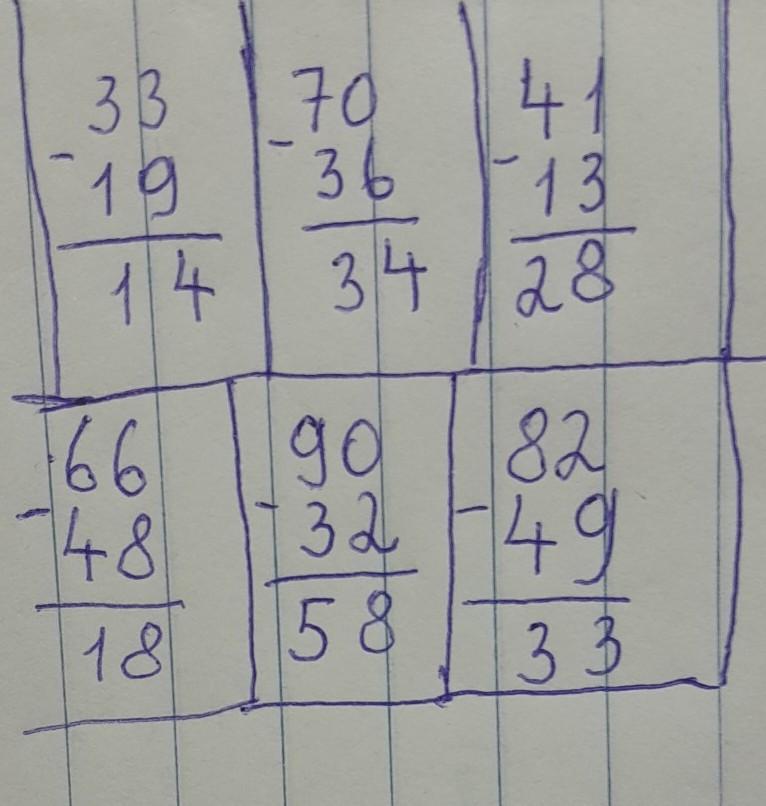 33
-
19
14
70
-
36
34
41
-
13
28
66
-
48
18
90
-
32
58
82
-
49
33